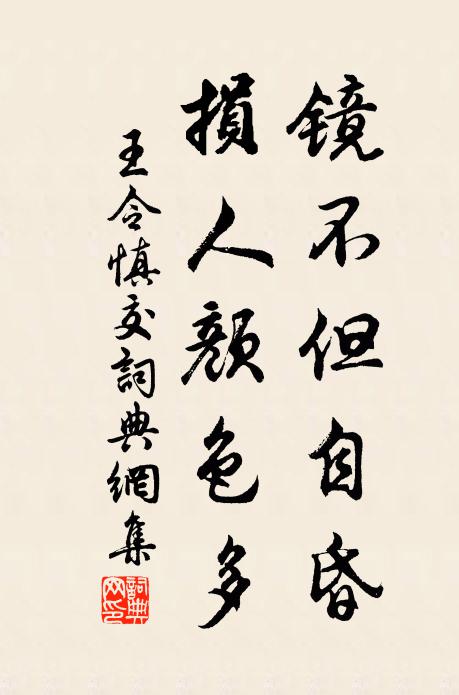 镜不但自昏
損人顔色多
王令慎交詞典網集
詞典网印